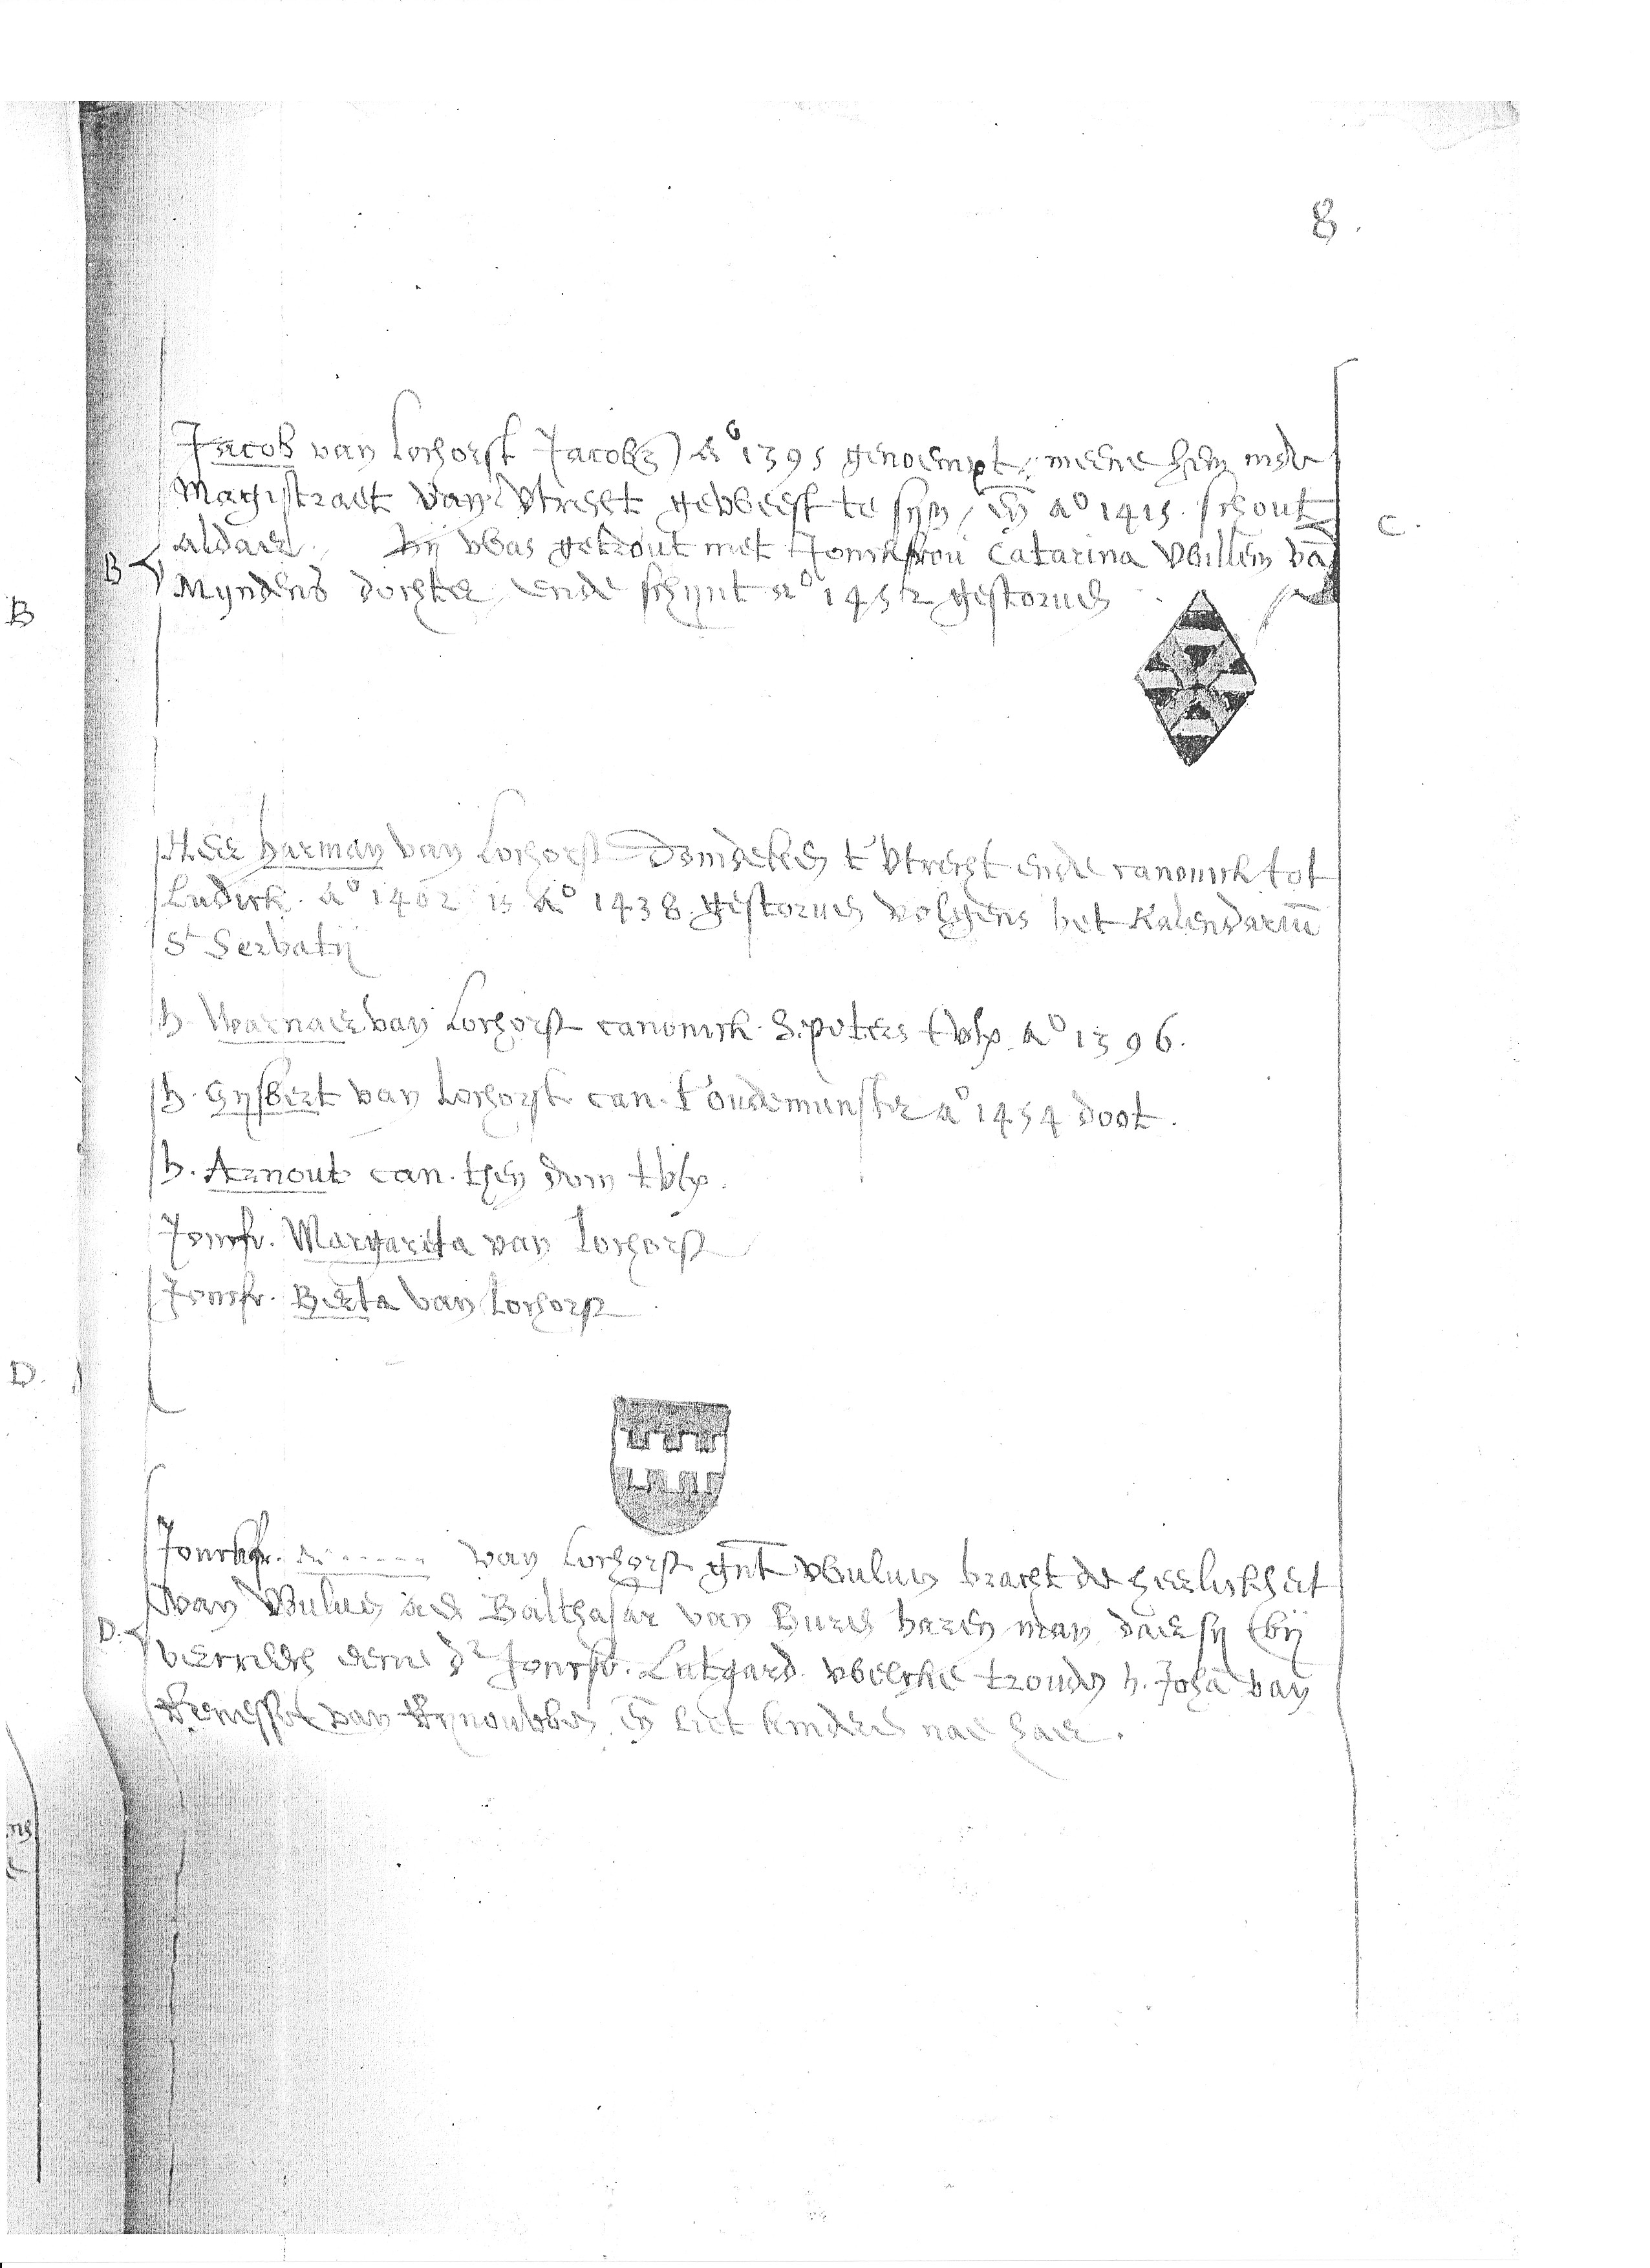 8.
Jacob van Lochorst Jacobs) Aº 1395 genoempt, meene hem inde
Magistraet van Vtrecht geweest te syn, en̄ Aº 1415. schout
C.
aldaer. hy was getrout met Jonckfrou Catarina Willem vā
B
Myndens dochter, ende schynt Aº 1452 gestoruen
B
Heer harman van Lochorst domdeken t'Vtrecht ende canonick tot
Ludick. Aº 1402 is Aº 1438 gestoruen volgens het Kalendariū
St Servatij
h. Warnaer van Lochorst canonick S. peters tVtr. Aº 1396.
h. Gysbert van Lochorst can. t'oudemunster Aº 1454 doot.
h. Arnout can. then dom tVtr.
Joncfr. Margarita van Lochorst
Joncfr. Berta van Lochorst
D.
Jonckfr. A....... van Lochorst gnt Wuluen bracht de heerlickheit
van Wuluen aen Balthasar van Buren haren man, daer sy by
D.
verweckte eene dr Joncfr. Lutgard. welcke trouden h. Johā van
Renesse van Rynouwen, en̄ liet kinderen nae haer.